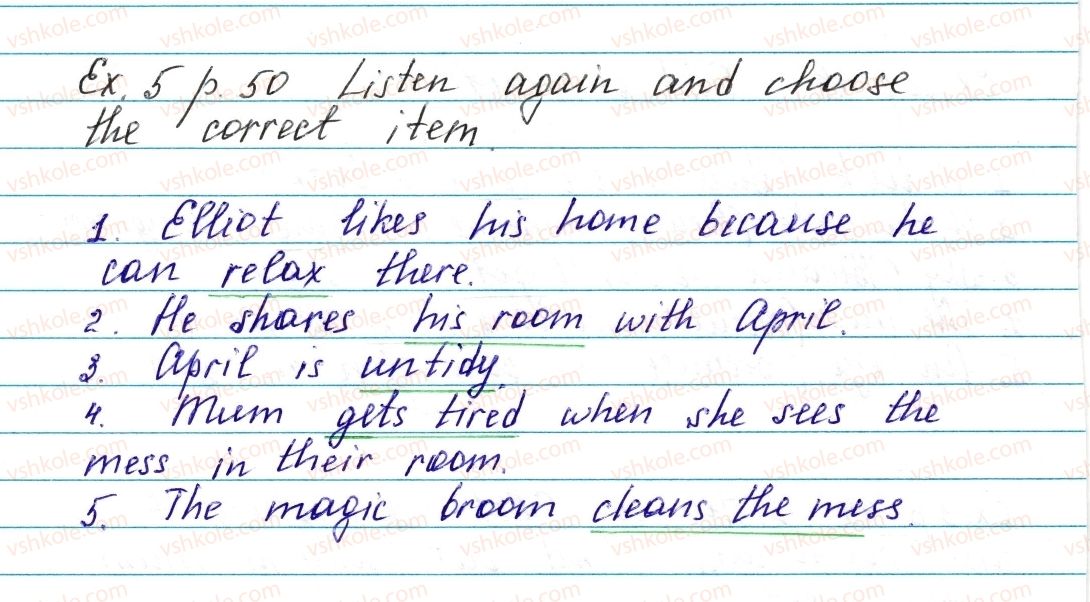 Ex. 5 p. 50 Listen again and choose
the correct item.
1. Elliot likes his home because he
can relax there.
2. He shares his room with April.
3. April is untidy.
4. Mum gets tired when she sees the
mess in their room.
5. The magic broom cleans the mess.